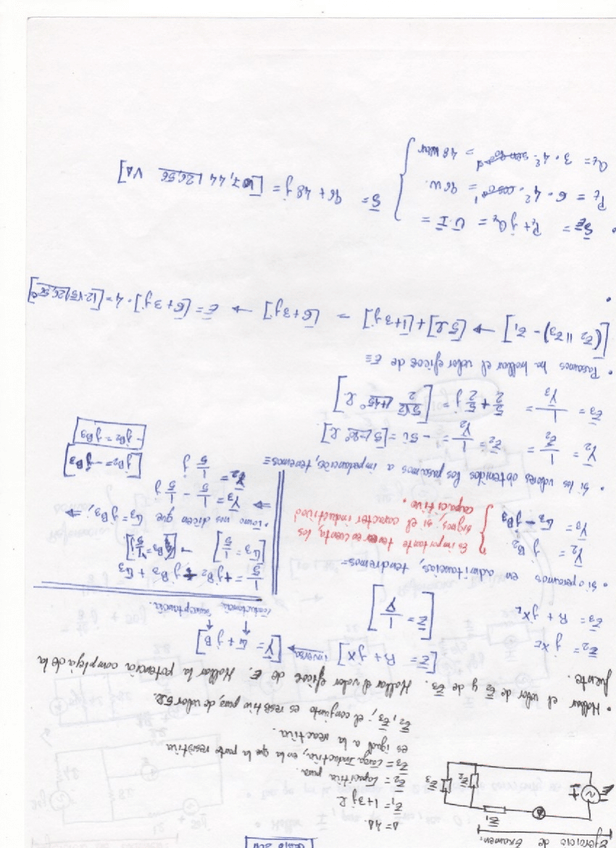 Ejercicio de Examen.
A = 4A.
Z̄₁ = 1+3j Ω
Z̄₂ = Capacitiva pura.
Z̄₃ = Carga Inductiva, en la que la parte resistiva
es igual a la reactiva.
Z̄₂, Z̄₃; el conjunto es resistivo puro, de valor 5Ω.
• Hallar el valor de Z̄₂ y de Z̄₃. Hallar el valor eficaz de E. Hallar la potencia compleja de la
fuente.
Z̄₂ = jXc
Z̄₃ = R + jX_L
[Z̄ = R + jX] inversa [Ȳ = G + jB]
[Z̄ = 1/Ȳ]
conductancia susceptancia.
• Si operamos en admitancias, tendremos=
Ȳ₂ = jB₂
Ȳ₃ = G₃ - jB₃
Es importante tener en cuenta los
signos, si el carácter inductivo o
capacitivo.
1/5 = +jB₂ - jB₃ + G₃
[G₃ = 1/5] → [B₃ = 1/5]
• Como nos dicen que G₃ = jB₃, ⇒
⇒ Ȳ₃ = 1/5 - 1/5 j
Ȳ₂ = 1/5 j
[jB₂ = jB₃]
[-jB₂ = jB₃]
• Si los valores obtenidos los pasamos a impedancias, tenemos=
Ȳ₂ = 1/Z̄₂ = Z̄₂ = 1/Ȳ₂ = -5i = [5∠-90° Ω]
Z̄₃ = 1/Ȳ₃ = 5/2 + 5/2 j = [5√2/2 ∠+45° Ω]
• Pasamos ha hallar el valor eficaz de E=
[(Z̄₂ // Z̄₃) - Z̄₁] → [5Ω] + [1+3j] = [6+3j] → Ē = [6+3j]·4 = [12√5 ∠26,56°]
• S̄E = Pt + jQt = Ū·Ī =
Pt = 6 · 4² · = 96 W.
Qt = 3 · 4² · = 48 War
S̄ = 96 + 48j = [107,44 ∠26,56 VA]